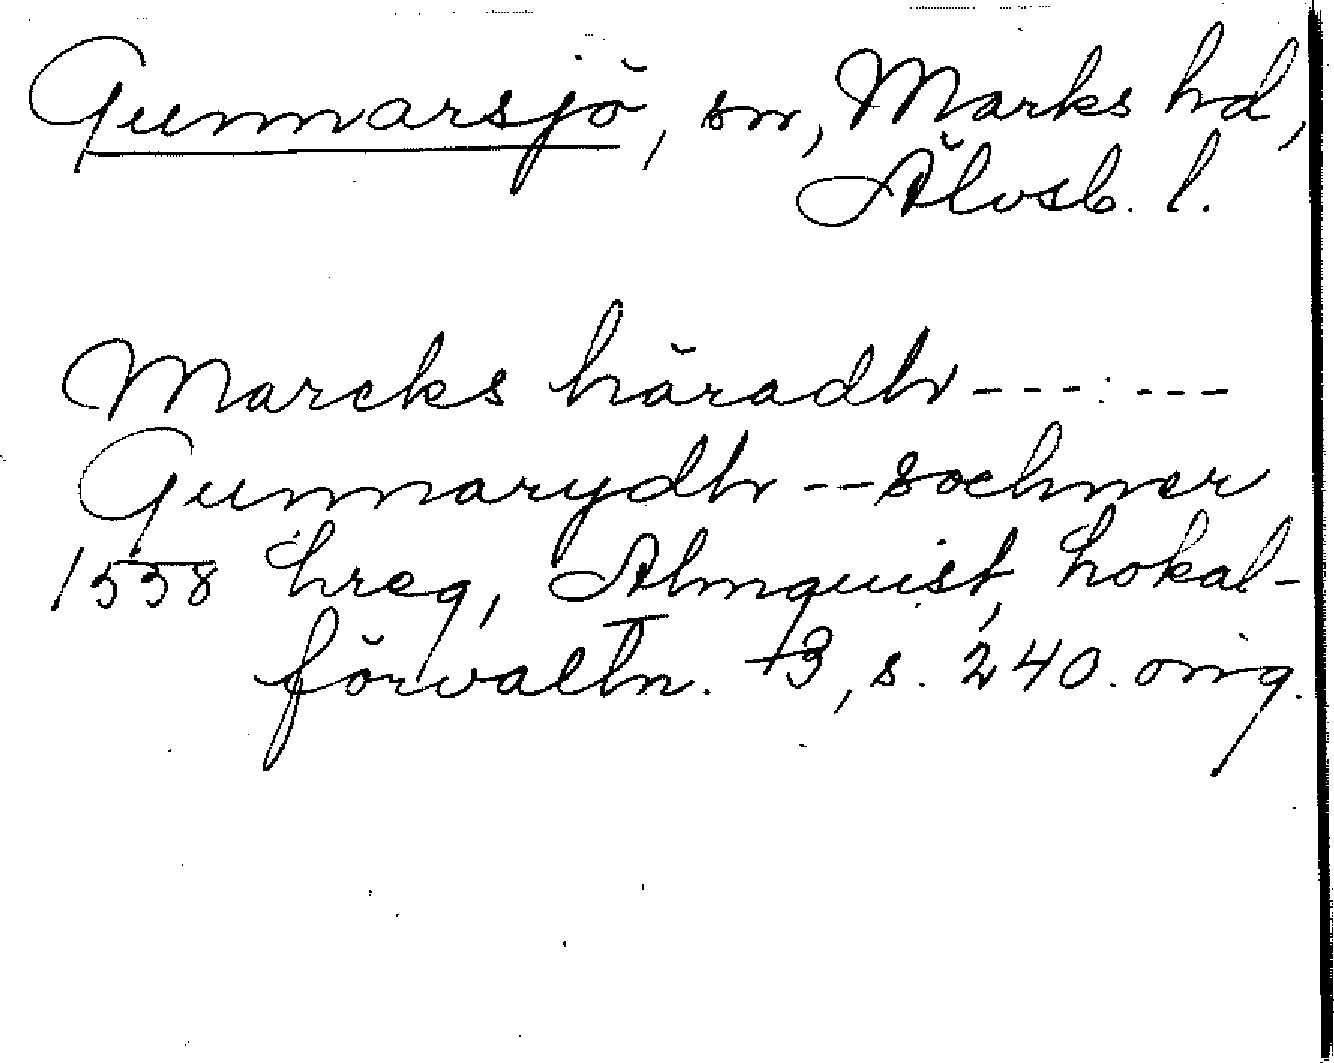 Gunnarsjö, sn, Marks hd,
Älvsb. l.
Marcks häradh ---:---
Gunnarydh -- sochner
1558 hreg, Almquist, Lokal-
förvaltn. I 3, s. 240. orig.